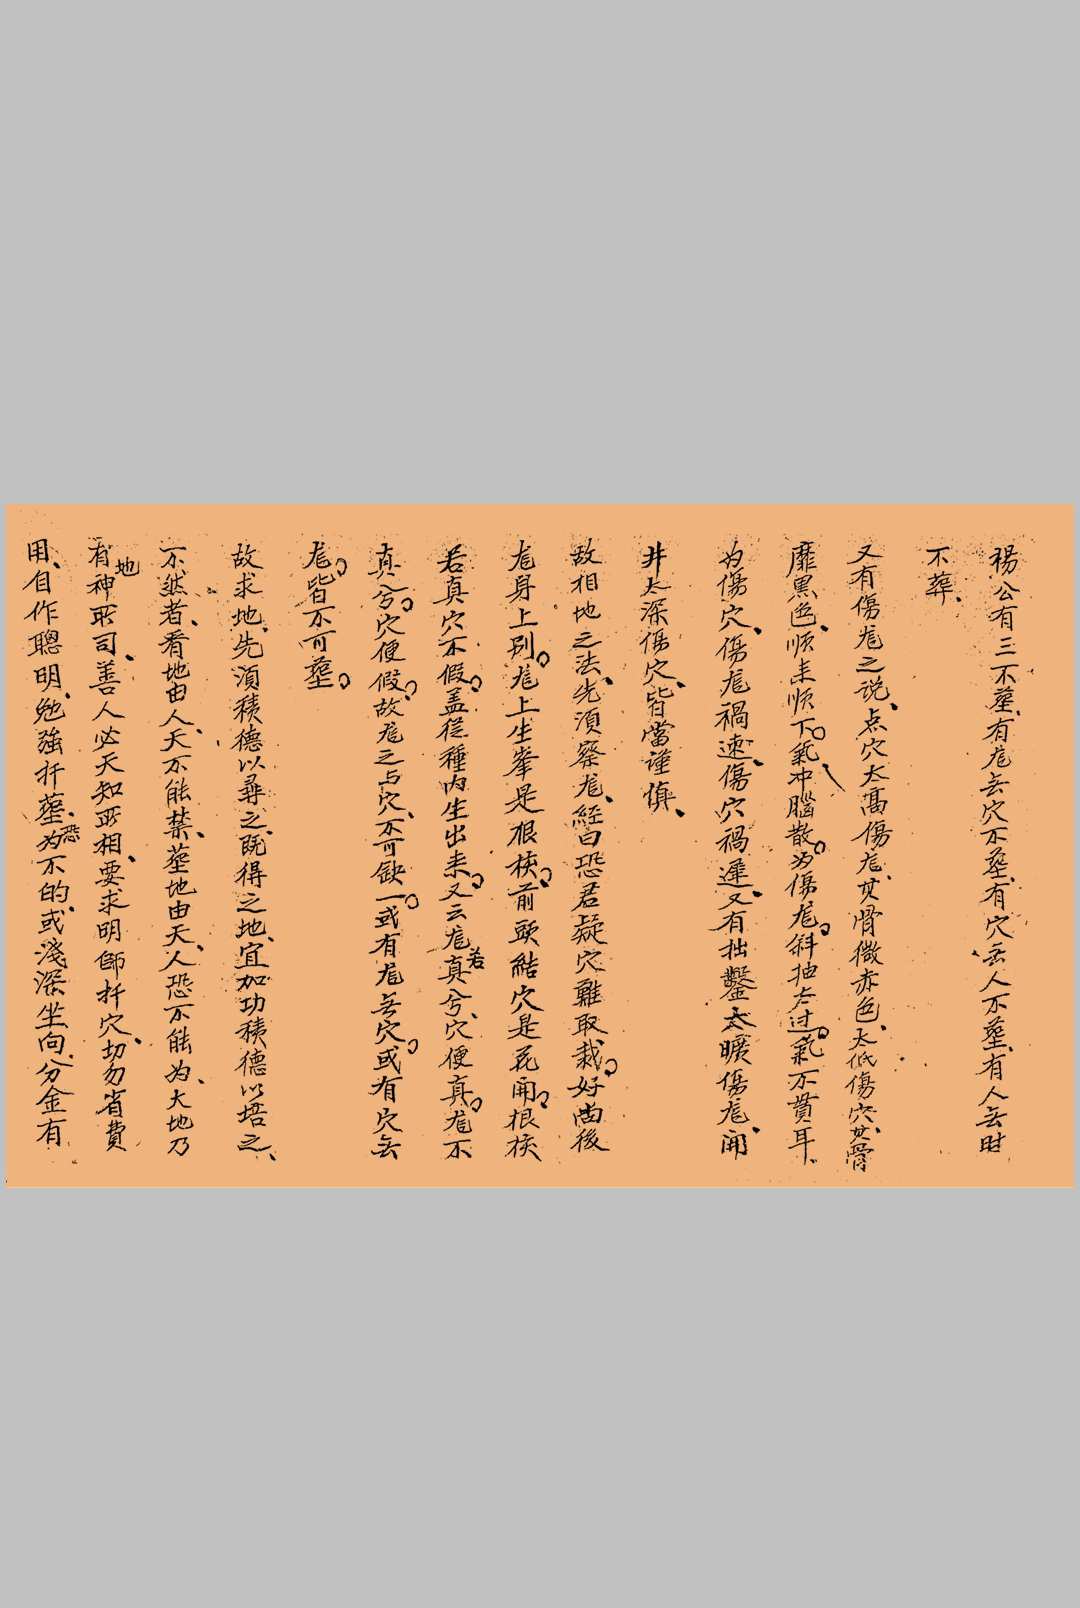 楊公有三不塟、有尨无穴不塟、有穴无人不塟、有人无时
不葬、
又有傷尨之说、点穴太高傷尨、其骨微赤色、太低傷穴、其骨
靡黒色、顺来顺下。氣冲腦散為傷尨。斜抽太过。氣不貫耳、
为傷穴、傷尨禍速、傷穴禍遲、又有拙鑿太曠傷尨、開
井太深傷穴、皆當謹慎、
故相地之法、先須察尨、經曰恐君疑穴難取裁。好面後
尨身上别。尨上生峯是根荄。前頭結穴是花開。根荄
若真穴不假。盖従種内生出来。又云尨若真兮、穴便真。尨不
真兮。穴便假。故尨之与穴、不可缺一。或有尨无穴。或有穴无
尨。皆不可塟。
故求地、先須積德以尋之、既得之地、宜加功積德以培之、
不然者、看地由人、天不能禁、塟地由天、人恐不能为、大地乃
有地神所司、善人必天知所相、要求明師扦穴、切勿省費
用、自作聰明、勉強扦塟、恐为不的、或淺深坐向、分金有